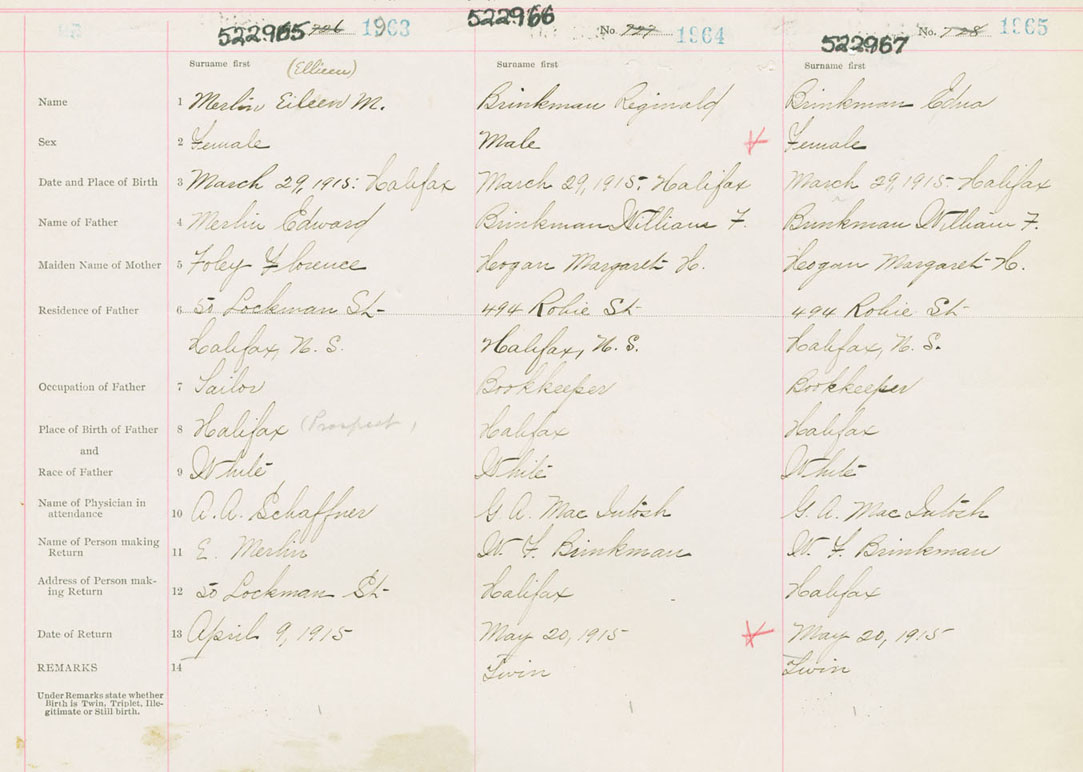 522965 726 1963 522966 No. 727 1964 522967 No. 728 1965
Surname first (Ellieen) Surname first Surname first
Name 1 Merlin Eileen M. Brinkman Reginald Brinkman Edna
Sex 2 Female Male Female
Date and Place of Birth 3 March 29, 1915: Halifax March 29, 1915: Halifax March 29, 1915: Halifax
Name of Father 4 Merlin Edward Brinkman William F. Brinkman William F.
Maiden Name of Mother 5 Foley Florence Hogan Margaret H. Hogan Margaret H.
Residence of Father 6 50 Lockman St 494 Robie St 494 Robie St
Halifax, N. S. Halifax, N. S. Halifax, N. S.
Occupation of Father 7 Bookkeeper Bookkeeper
Place of Birth of Father 8 Halifax (Prospect, Halifax Halifax
and
Race of Father 9 White White White
Name of Physician in
attendance 10 A. A. Schaffner G. A. Mac Intosh G. A. Mac Intosh
Name of Person making
Return 11 E. Merlin W. F. Brinkman W. F. Brinkman
Address of Person mak-
ing Return 12 50 Lockman St Halifax Halifax
Date of Return 13 April 9, 1915 May 20, 1915 May 20, 1915
REMARKS 14 Twin Twin
Under Remarks state whether
Birth is Twin, Triplet, Ille-
gitimate or Still birth.